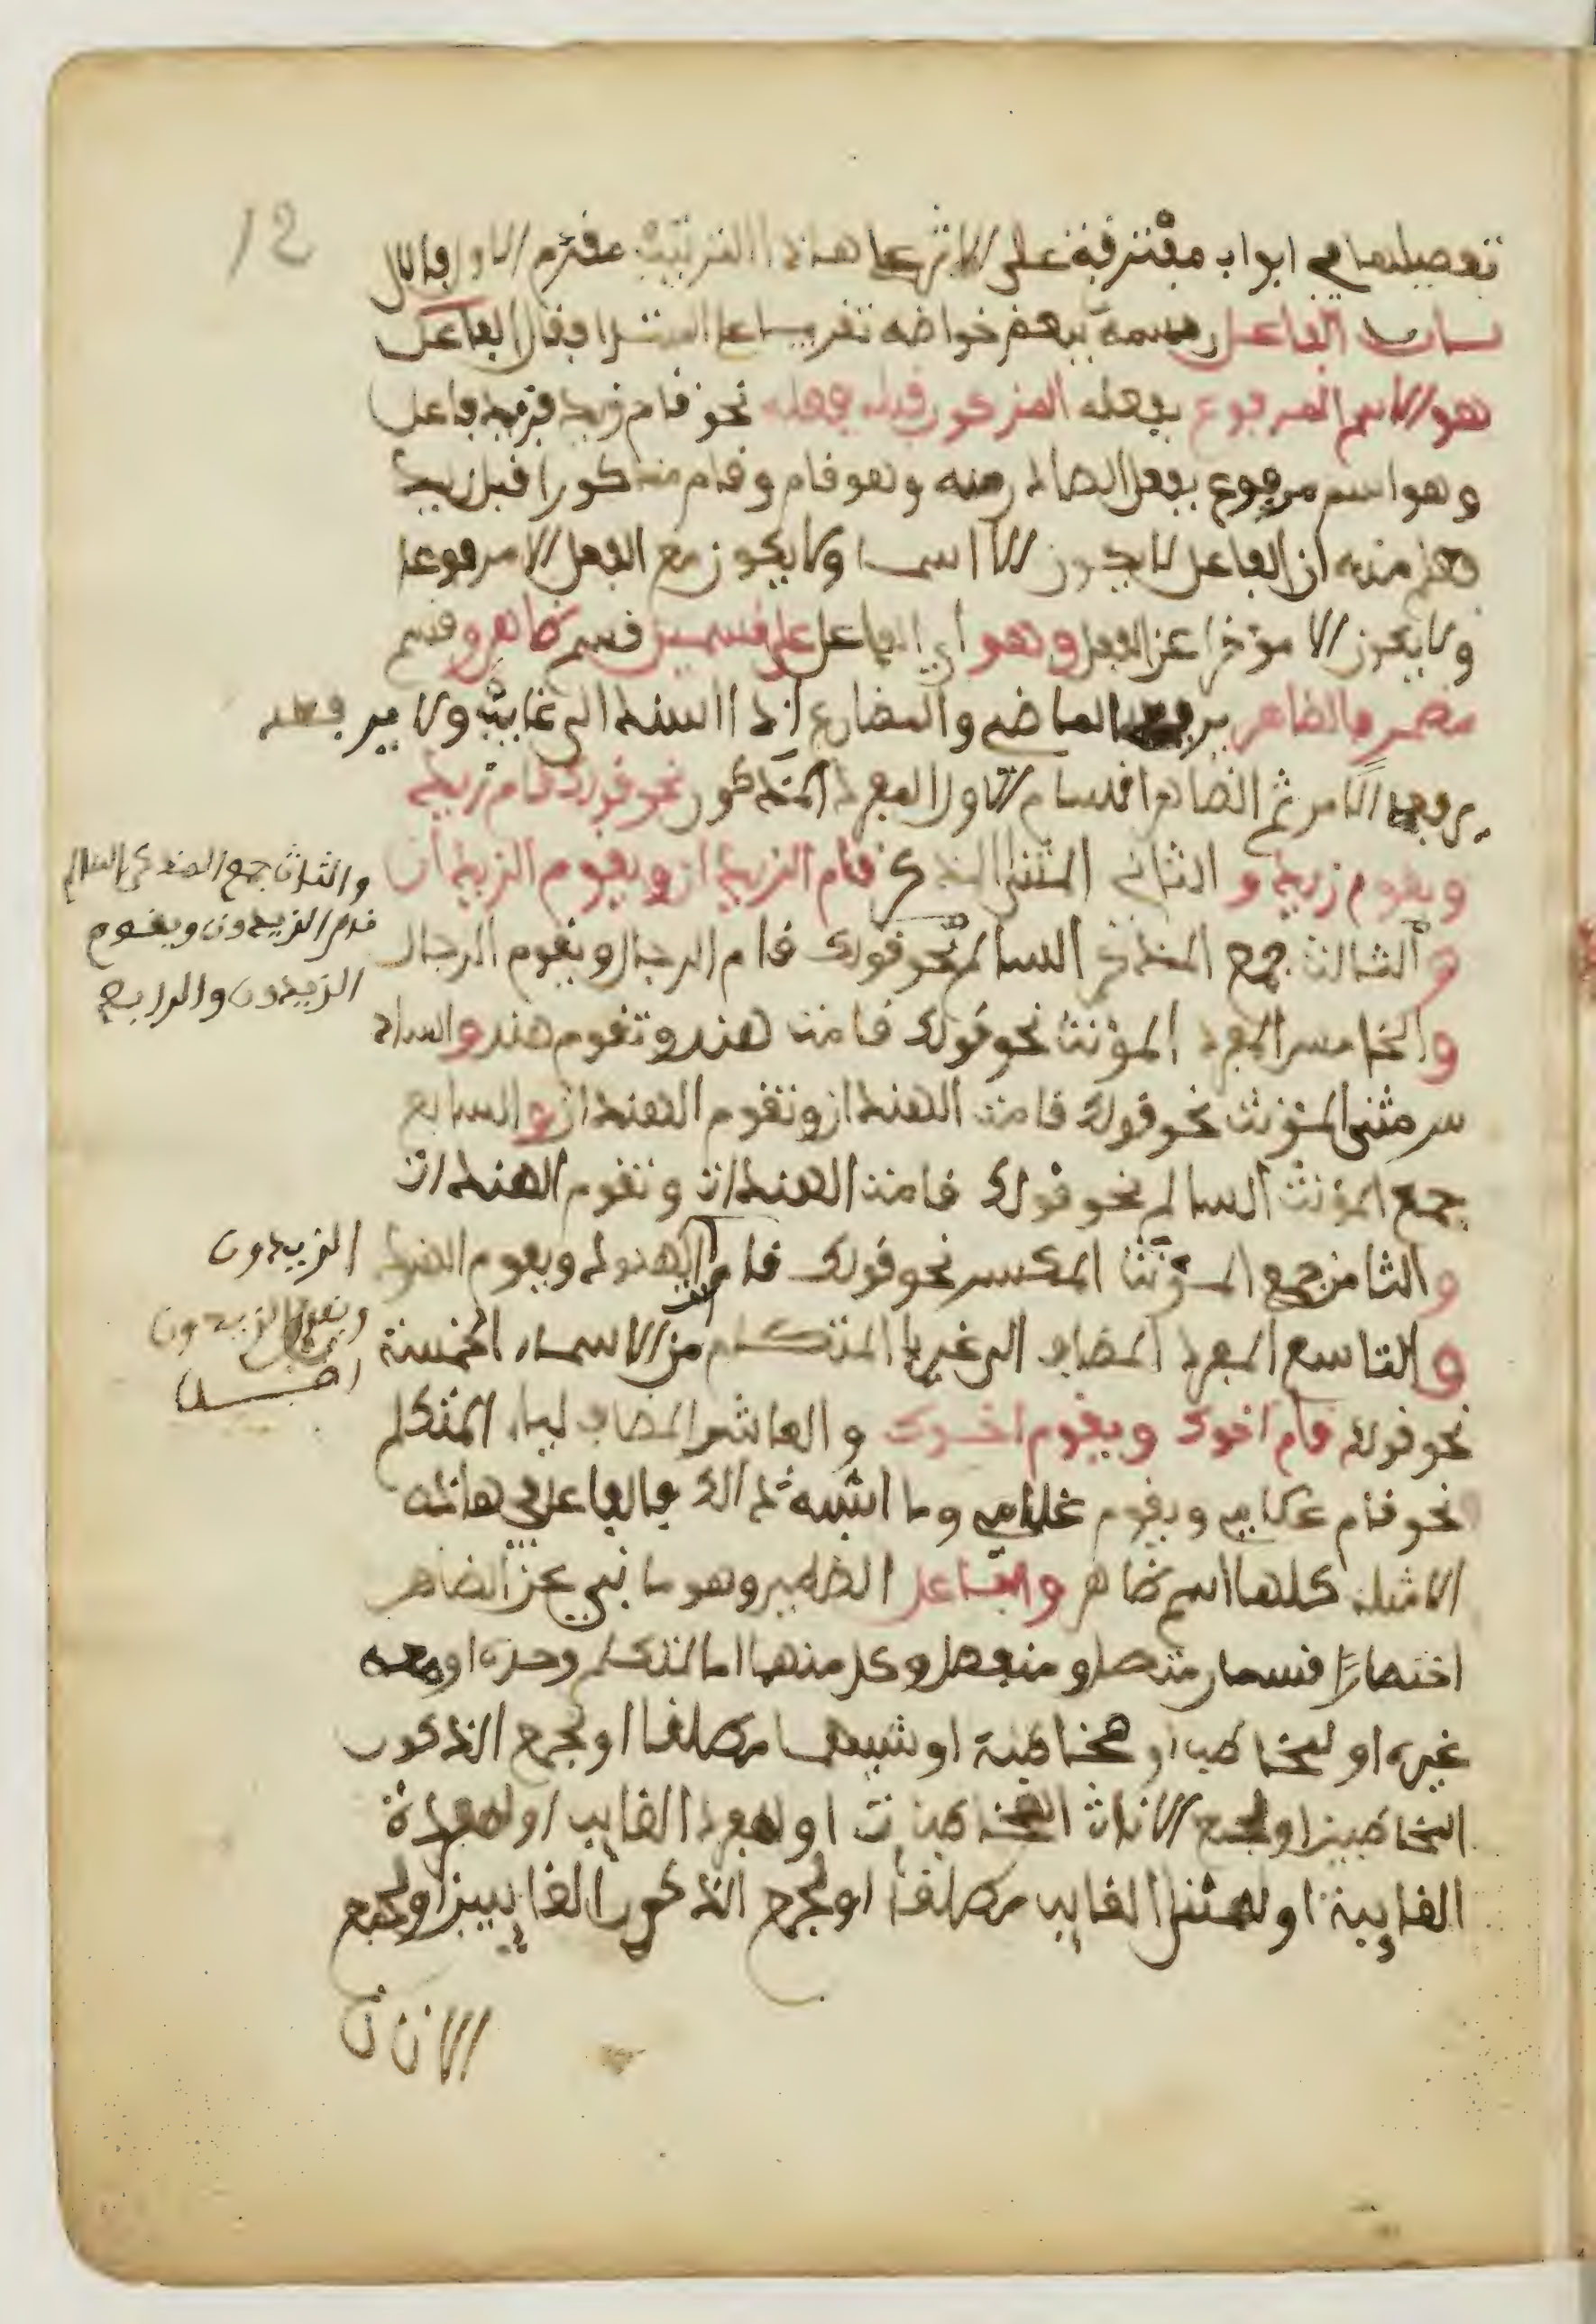 12
تفصيلها في ابواب مفترقة على الاثر على هاذا الترتيب مقدم الاول فالاول
باب الفاعل رسمه ببعض خواصه تقريبا على المبتدا فقال الفاعل
هو الاسم المرفوع بفعله المذكور قبله فعله نحو قام زيد فزيد فاعل
وهو اسم مرفوع بفعل الصادر منه وهو قام وقام مذكورا قبل زيد
فعلم منه ان الفاعل لا يكون الا اسما ولا يكون مع الفعل الا مرفوعا
ولا يكون الا مؤخرا عن الفعل وهو اي الفاعل على قسمين قسم ظاهر وقسم
مضمر فالظاهر يرفعه الماضي والمضارع اذا اسند الى غايب والامر
يرفعه الامر ثم الظاهر اقسام الاول المفرد المذكور نحو قولك قام زيد
ويقوم زيد و الثاني المثنى المذكر قام الزيدان ويقوم الزيدان
والثالث جمع المذكر السالم
قام الزيدون ويقوم
الزيدون والرابع
والثالث جمع المذكر السالم نحو قولك قام الرجال ويقوم الرجال
والخامس المفرد المؤنث نحو قولك قامت هند وتقوم هند والساد
س مثنى المؤنث نحو قولك قامت الهندان وتقوم الهندان والسابع
جمع المؤنث السالم نحو قولك قامت الهندات وتقوم الهندات
والثامن جمع المؤنث المكسر نحو قولك قام الهنود ويقوم الهنود
الزيدون
ويقوم الزيدون
والتاسع المفرد المضاف الى غير يا المتكلم من الاسماء الخمسة
نحو قولك قام اخوك ويقوم اخوك والعاشر المضاف لياء المتكلم
نحو قام غلامي ويقوم غلامي وما اشبه ذالك فالفاعل في هاذه
الامثلة كلها اسم ظاهر والفاعل الظمير وهو ما نبي عن الظاهر
اختصارا قسمان متصل ومنفصل وكل منهما اما لمتكلم وحده او معه
غيره او لمخاطب او مخاطبة او تثنيهما مطلقا او لجمع الذكور
المخاطبين او لجمع الاناث المخاطبات او لمفرد الغايب او لمفردة
الغايبة او لمثنى الغايب مطلقا او لجمع الذكور الغايبين او لجمع
الاناث